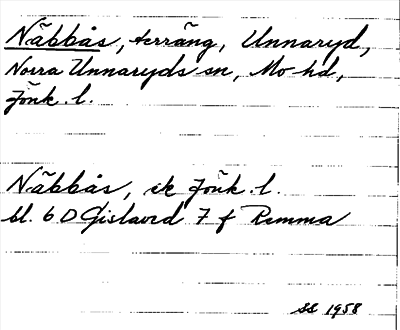 Näbbås, terräng, Unnaryd,
Norra Unnaryds sn, Mo hd,
Jönk. l.
Näbbås, ek Jönk. l.
bl. 6 D Gislaved 7 f Remma
SS 1958